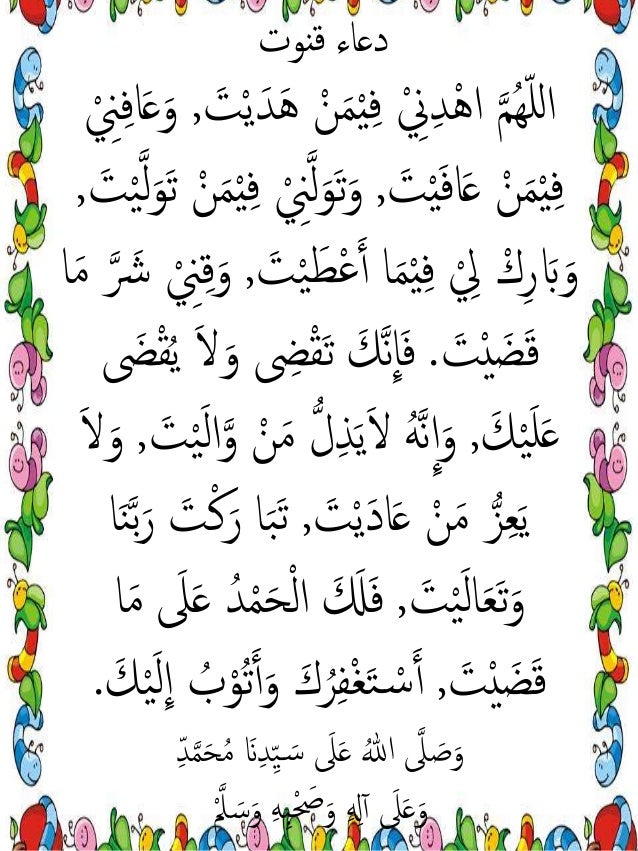 دعاء قنوت
اللّهُمَّ اهْدِنِيْ فِيْمَنْ هَدَيْتَ, وَعَافِنِيْ
فِيْمَنْ عَافَيْتَ, وَتَوَلَّنِيْ فِيْمَنْ تَوَلَّيْتَ,
وَبَارِكْ لِيْ فِيْمَا أَعْطَيْتَ, وَقِنِيْ شَرَّ مَا
قَضَيْتَ. فَإِنَّكَ تَقْضِى وَلاَ يُقْضَى
عَلَيْكَ, وَإِنَّهُ لاَيَذِلُّ مَنْ وَّالَيْتَ, وَلاَ
يَعِزُّ مَنْ عَادَيْتَ, تَبَا رَكْتَ رَبَّنَا
وَتَعَالَيْتَ, فَلَكَ الْحَمْدُ عَلَى مَا
قَضَيْتَ, أَسْتَغْفِرُكَ وَأَتُوْبُ إِلَيْكَ.
وَصَلَّى اللهُ عَلَى سَيِّدِنَا مُحَمَّدِّ
وَعَلَى آلِهِ وَصَحْبِهِ وَسَلَّمْ